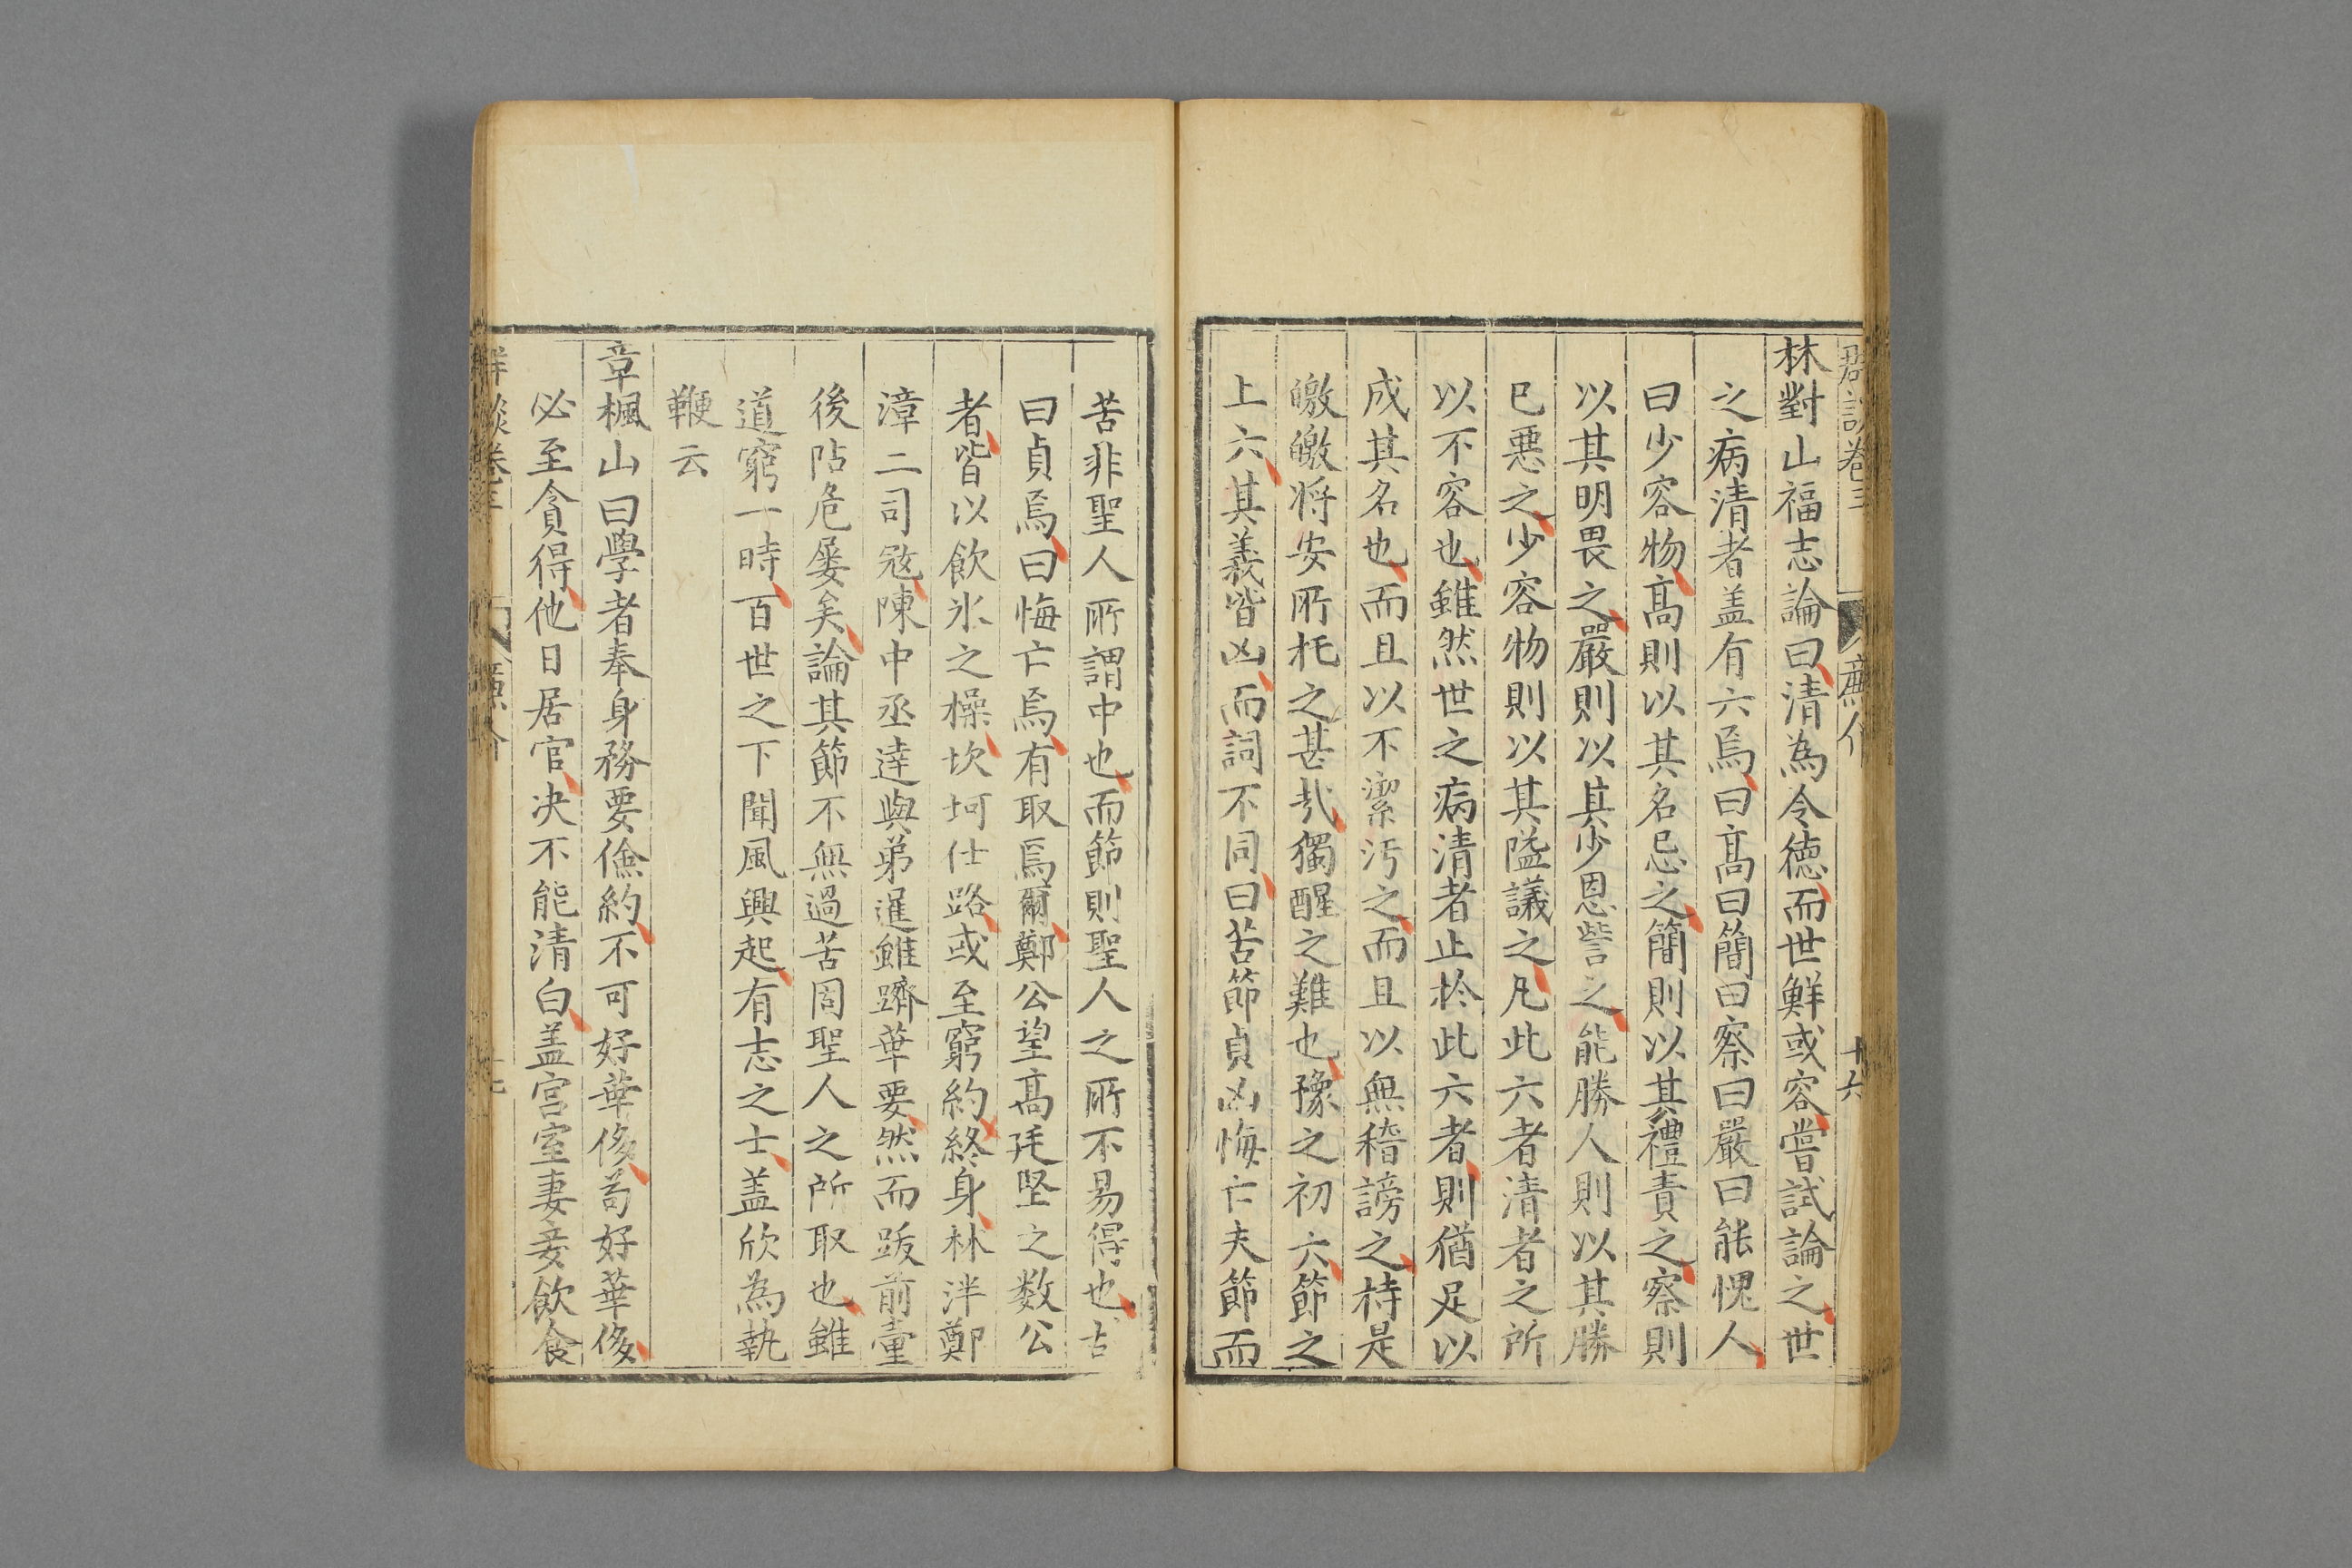 林對山福志論曰清為令徳而世鮮或容嘗試論之世
之病清者盖有六焉曰髙曰簡曰察曰嚴曰能愧人
曰少容物髙則以其名忌之簡則以其禮責之察則
以其明畏之嚴則以其少恩訾之能勝人則以其勝
已惡之少容物則以其隘議之凡此六者清者之所
以不容也雖然世之病清者止於此六者則猶足以
成其名也而且以不潔汚之而且以無稽謗之持是
皦皦将安所托之甚㢤獨醒之難也豫之初六節之
上六其義皆凶而詞不同曰苦節貞凶悔亡夫節而
苦非聖人所謂中也而節則聖人之所不易得也古
曰貞焉曰悔亡焉有取焉爾鄭公望髙廷堅之数公
者皆以飲氷之操坎坷仕路或至窮約終身林泮鄭
漳二司冦陳中丞達與弟暹雖躋華要然而跋前疐
後阽危屡矣論其節不無過苦固聖人之所取也雖
道窮一時百世之下聞風興起有志之士盖欣為執
鞭云
章楓山曰學者奉身務要儉約不可好華侈茍好華侈
必至貪得他日居官决不能清白盖宫室妻妾飲食
十六